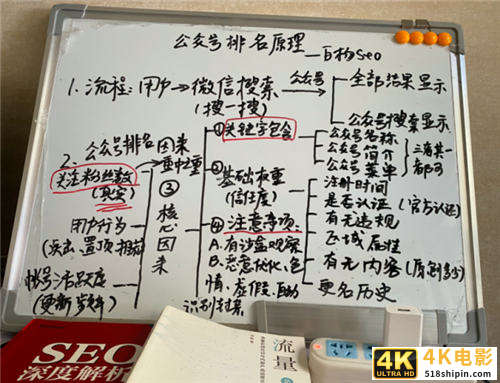 公众号排名原理—百构seo
1. 流程：用户→微信搜索
（搜一搜）
公众号
全部结果显示
公众号搜索显示
2. 公众号排名因素
重中之重
关注粉丝数
（真实）
用户行为
（点击、置顶
帐号活跃度
（更新
③
核心因素
①关键字包含
公众号名称
公众号简介
公众号菜单
三者其一
都可
②
基础权重
（信任度）
注册时间
是否认证（官方认证）
有无违规
区域属性
有无内容（原创多少）
更名历史
④注意事项
A. 有涉
B. 恶意优化、色
情、虚假、
识别封杀
SEO
深度解析
流量
4K
ULTRA HD
4K电影
518shipin.com